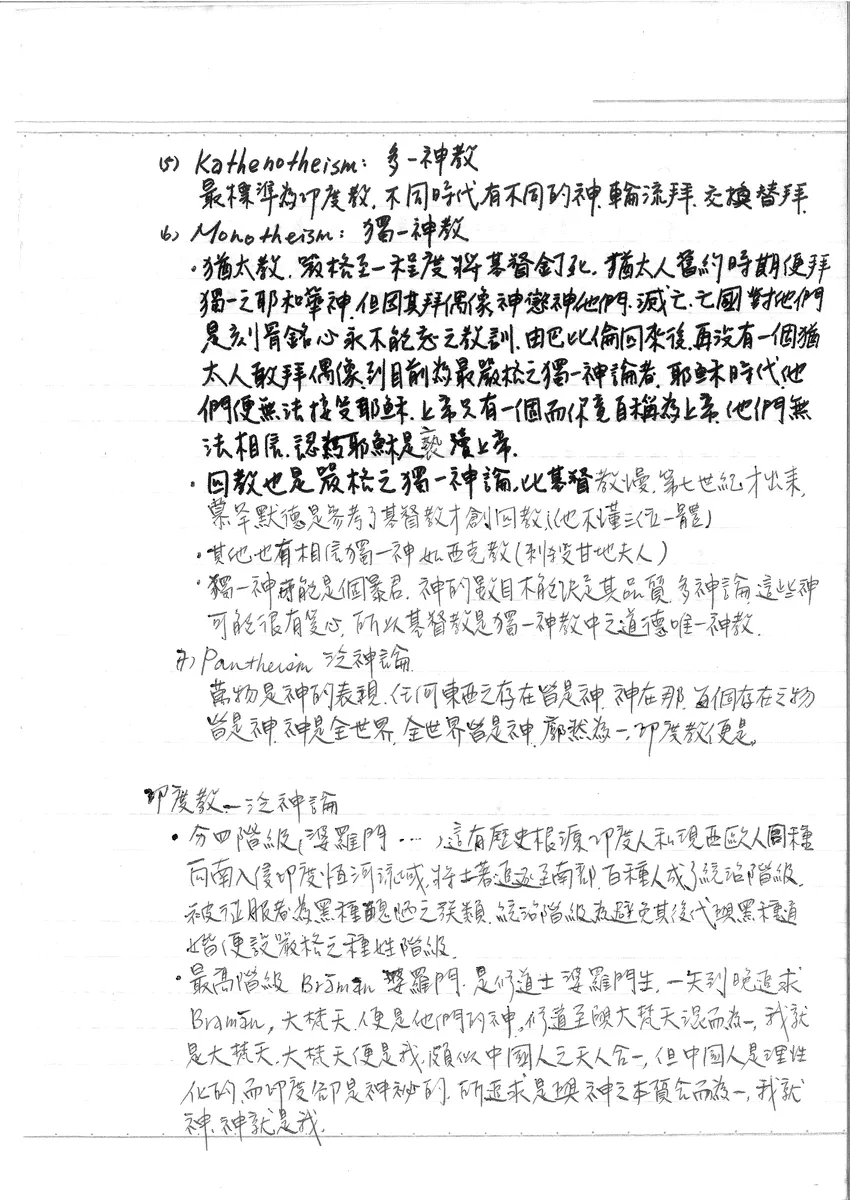 (5) Kathenotheism: 多一神教
最標準為印度教. 不同時代有不同的神. 輪流拜. 交換替拜.
(6) Monotheism: 獨一神教
・猶太教. 嚴格至一程度將基督釘死. 猶太人舊約時期便拜
獨一之耶和華神. 但因其拜偶像. 神懲神他們. 滅亡. 亡國對他們
是刻骨銘心永不能忘之教訓. 由巴比倫回來後. 再沒有一個猶
太人敢拜偶像. 到目前為最嚴格之獨一神論者. 耶穌時代. 他
們便無法接受耶穌. 上帝只有一個而你竟自稱為上帝. 他們無
法相信. 認為耶穌是褻瀆上帝.
・回教也是嚴格之獨一神論. 比基督教慢. 第七世紀才出來.
慕罕默德是參考了基督教才創回教. (他不懂三位一體)
・其他也有相信獨一神如西克教 (刺殺甘地夫人)
・獨一神可能是個暴君. 神的數目不能決定其品質. 多神論. 這些神
可能很有愛心. 所以基督教是獨一神教中之道德唯一神教.
7) Pantheism 泛神論.
萬物是神的表現. 任何東西之存在皆是神. 神在那. 每個存在之物
皆是神. 神是全世界. 全世界皆是神. 廓然為一. 印度教便是。
印度教—泛神論
・分四階級 (婆羅門 …), 這有歷史根源. 印度人和現西歐人同種
向南入侵印度恆河流域. 將土著追逐至南部. 白種人成了統治階級.
被征服者為黑種醜陋之族類. 統治階級為避免其後代與黑種通
婚便設嚴格之種姓階級.
・最高階級 Brāman 婆羅門. 是修道士婆羅門生. 一天到晚追求
Braman, 大梵天便是他們的神. 修道至與大梵天混而為一. 我就
是大梵天. 大梵天便是我. 頗似中國人之天人合一. 但中國人是理性
化的. 而印度卻是神祕的. 所追求是與神之本質合而為一. 我就
神. 神就是我.